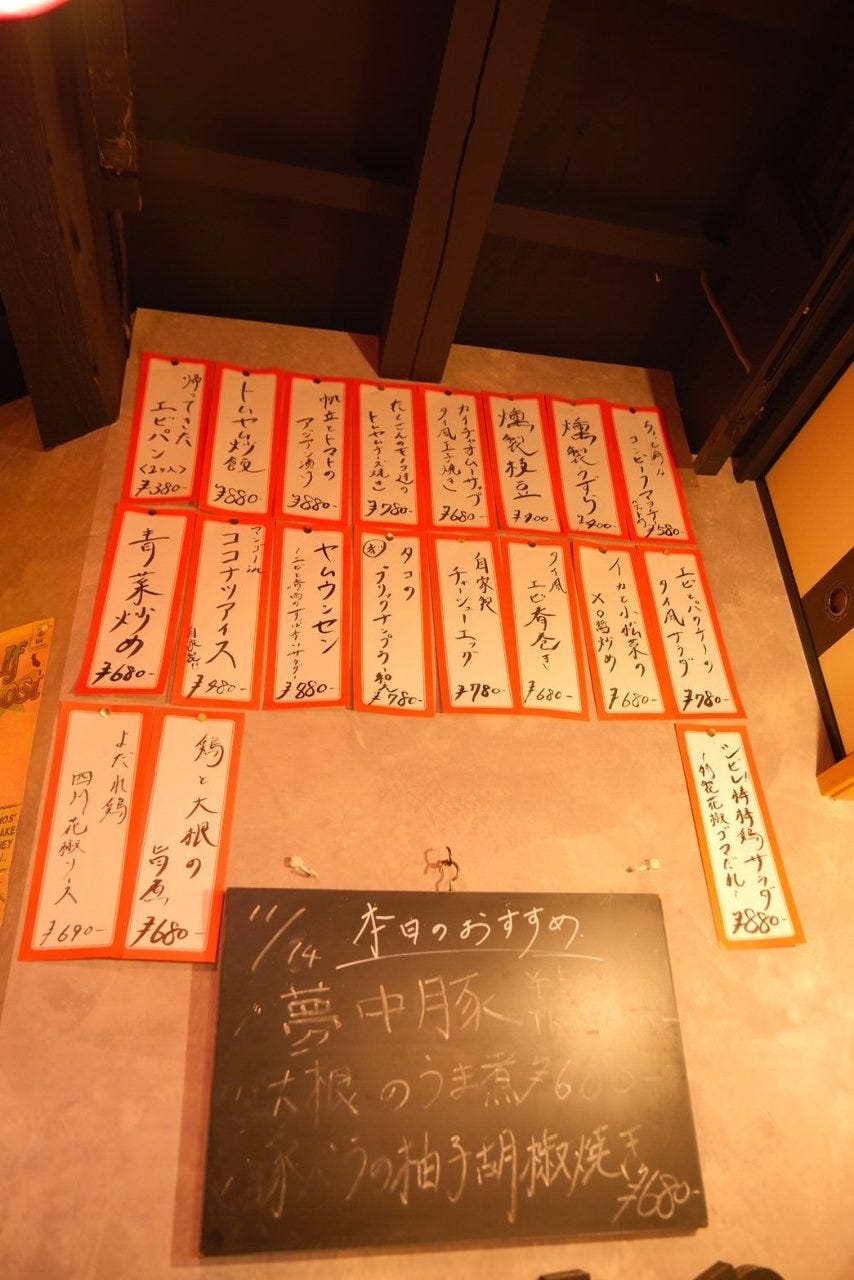 帰ってきた
エビパン
<2ヶ入>
¥380-
トムヤム炒飯
¥880-
帆立とトマトの
アジアン漬け
¥880-
たくさんのキノコ達の
トムヤムチーズ焼き
¥780-
カイチャオムーサップ
タイ風玉子焼き
¥680-
燻製枝豆
¥400-
燻製うずら
¥400-
¥580-
青菜炒め
¥680-
マンゴーin
ココナツアイス
自家製!!
¥480-
ヤムウンセン
¥880-
タコの
プリックナンプラー和え
¥780-
自家製
チャーシューエッグ
¥780-
タイ風
エビ春巻き
¥680-
イカと小松菜の
XO醬炒め
¥680-
エビとパクチーの
タイ風サラダ
¥780-
よだれ鶏
四川花椒ソース
¥690-
鶏と大根の
旨煮
¥680-
シビレ棒棒鶏サラダ
~特製花椒ゴマだれ~
¥880-
11/14
本日のおすすめ
夢中豚
大根のうま煮 ¥600-
豚バラの柚子胡椒焼き
¥680-